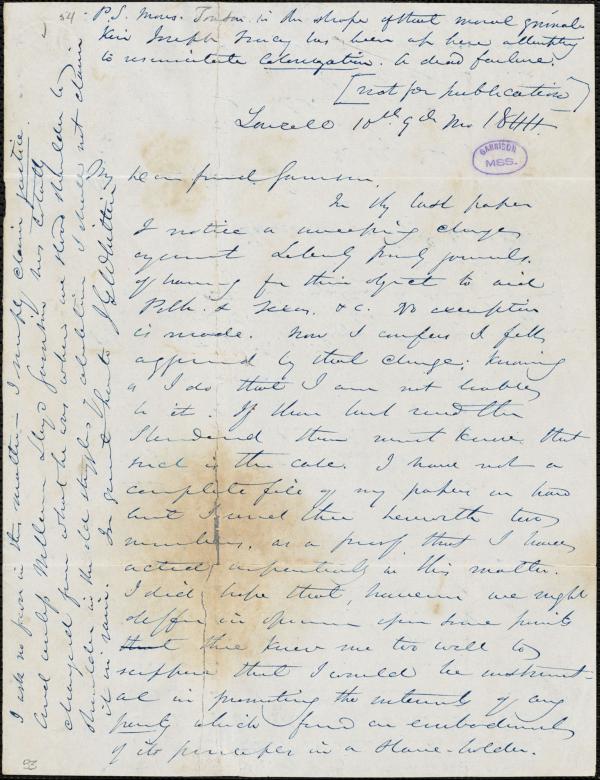 P.S. Mons. Tonson in the shape of that moral
Rev Joseph Tracy has been up here attempting
to resuscitate Colonization. A dead failure.
[not for publication]
Lowell 10th 9th Mo 1844
GARRISON
MSS.
My dear friend Garrison,
In thy last paper
I notice a sweeping charge
against Liberty party journals,
of having for their object to aid
Polk & Texas &c. No exception
is made. Now I confess I felt
aggrieved by that charge; knowing
as I do that I am not liable
to it. If thou hast read the
Standard thou must know that
such is the case. I have not a
complete file of my paper on hand
but I send thee herewith two
numbers, as a proof that I have
acted impartially in this matter.
I did hope that, however we might
differ in opinion upon some points
that thee knew me too well to
suppose that I would be instrument-
al in promoting the interests of any
party which find an embodiment
of its principles in a slave-holder.
I ask no favor in this matter — I simply claim justice.
And unless William Lloyd Garrison has totally
changed from what he was when we stood shoulder to
shoulder in the old struggles of abolition I shall not claim
it in vain.
In great haste J G Whittier
54